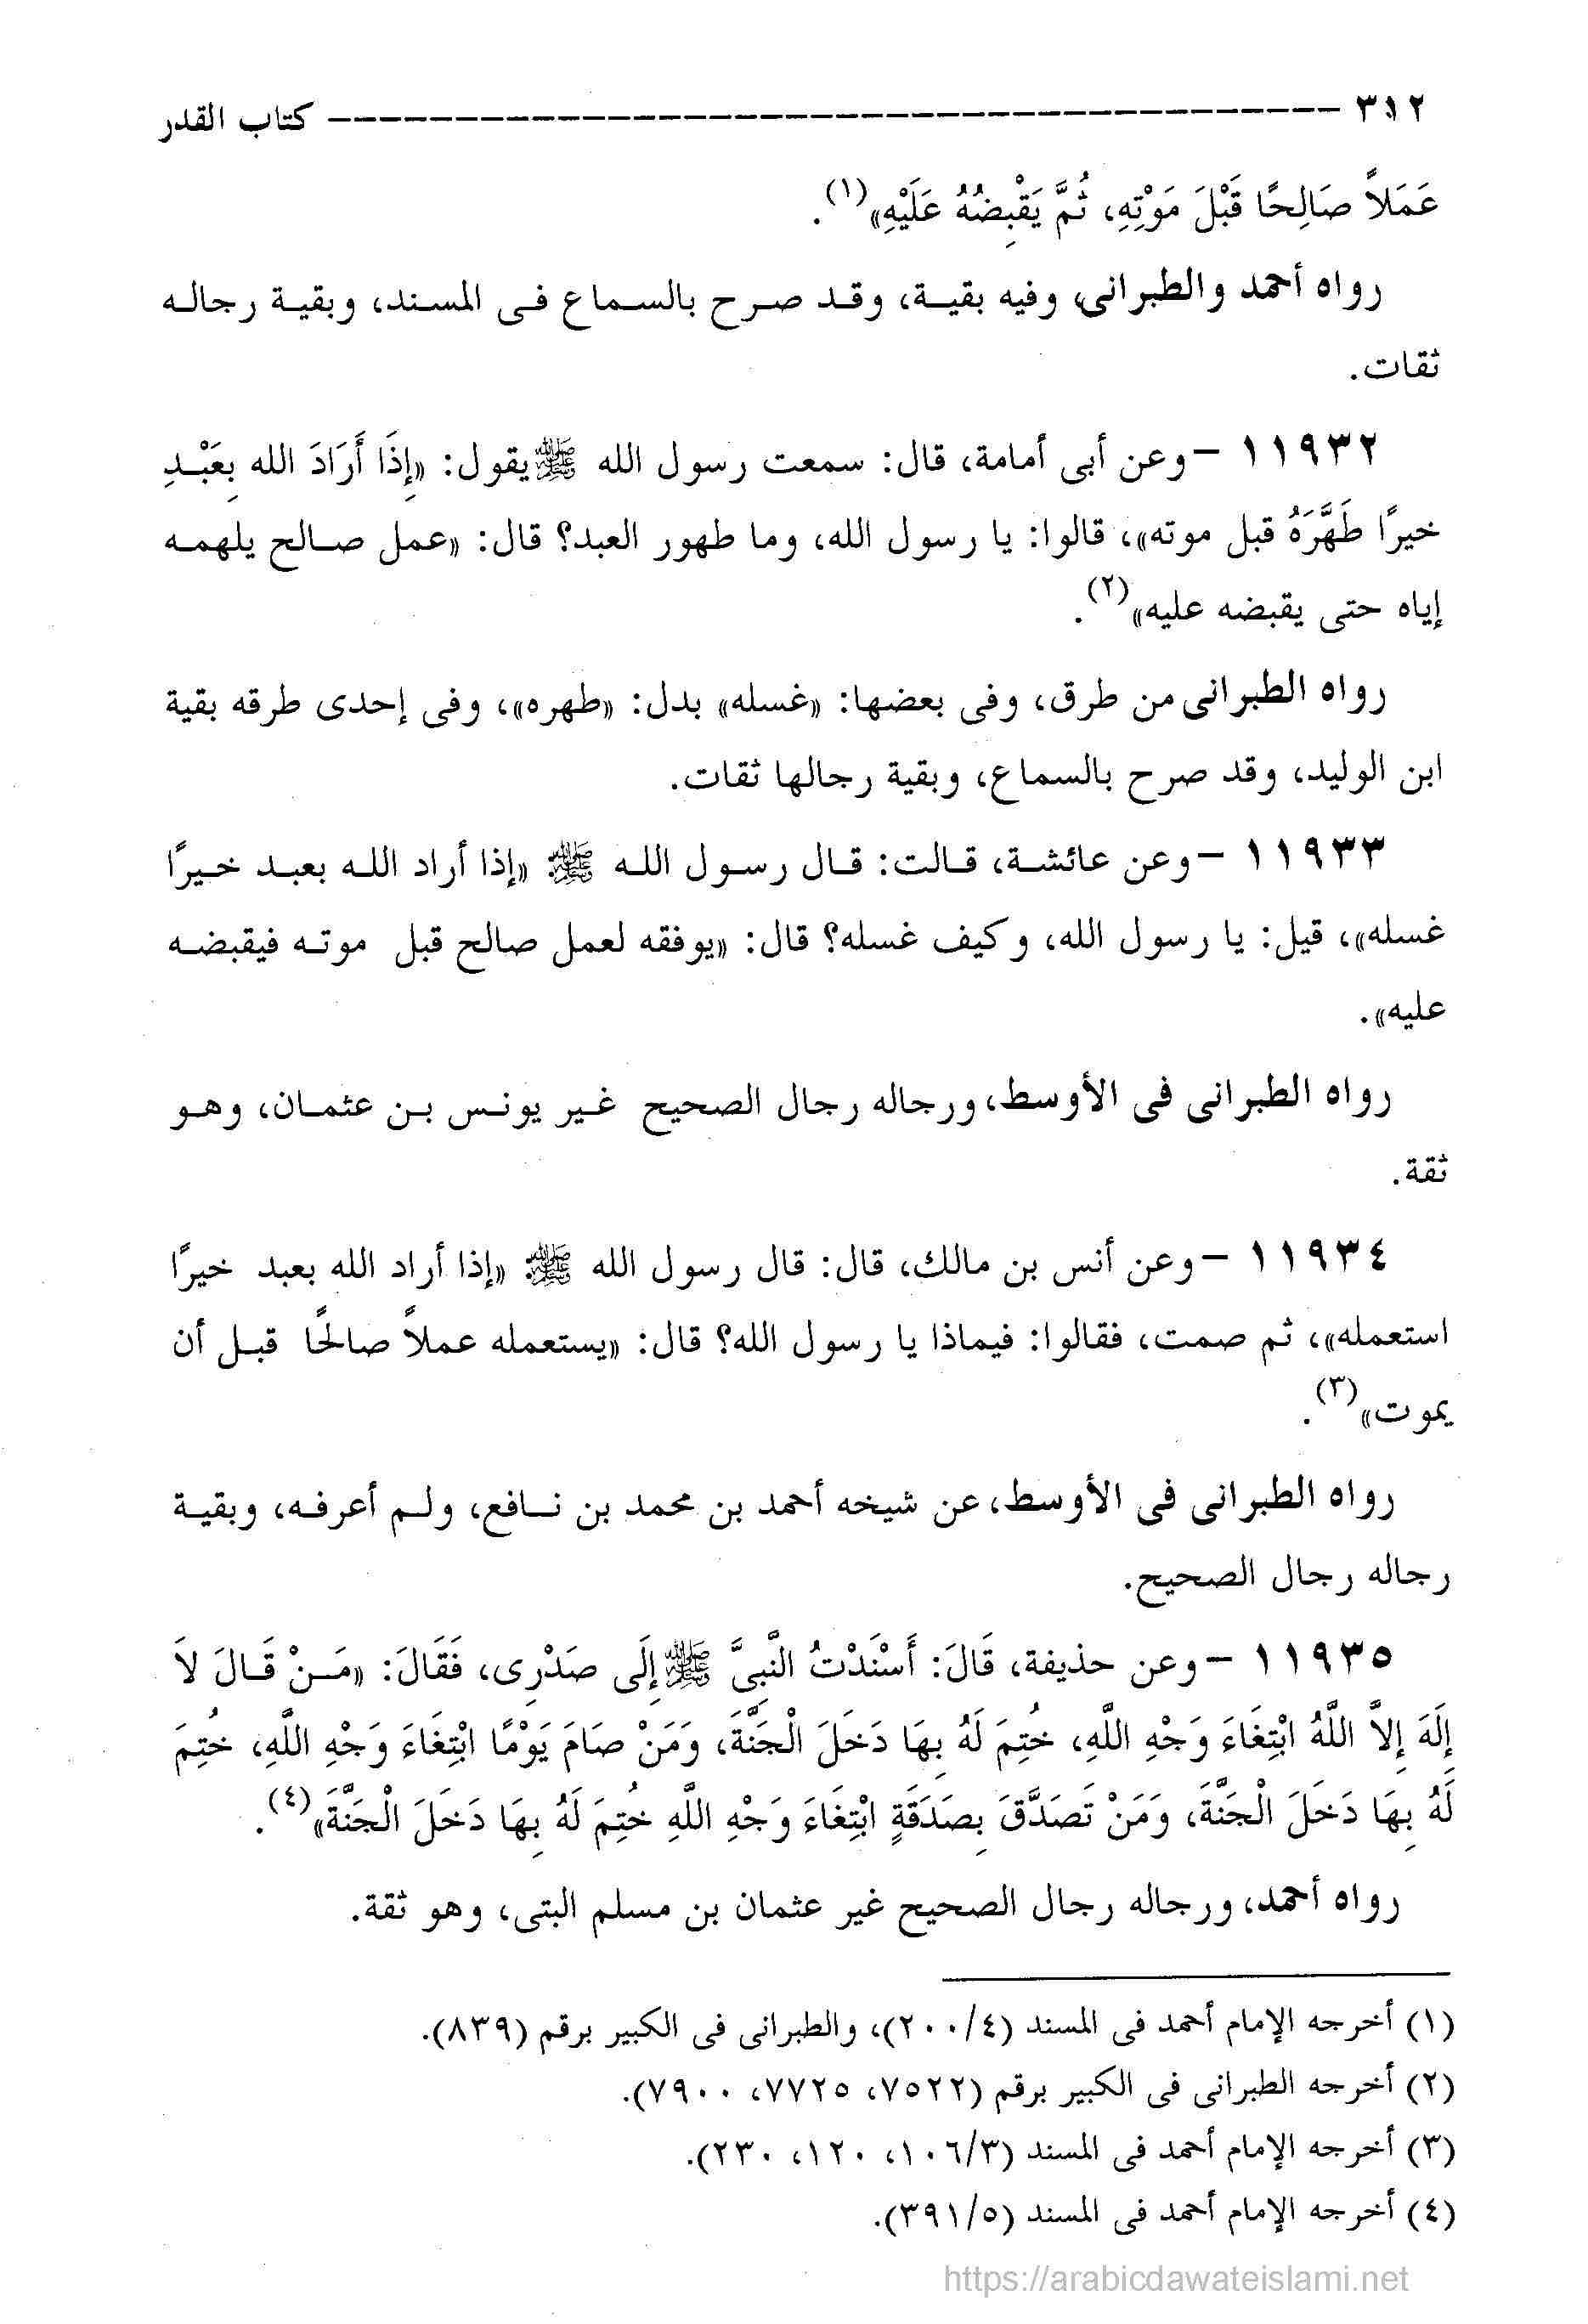 ٣١٢ ---------------------------------------- كتاب القدر
عَمَلاً صَالِحًا قَبْلَ مَوْتِهِ، ثُمَّ يَقْبِضُهُ عَلَيْهِ»(١).
رواه أحمد والطبرانى، وفيه بقيـة، وقـد صـرح بالسـماع فـى المسـند، وبقيـة رجالـه
ثقات.
١١٩٣٢ - وعن أبى أمامة، قال: سمعت رسول الله ﷺ يقول: «إِذَا أَرَادَ الله بِعَبْـدِ
خيرًا طَهَّرَهُ قبل موته»، قالوا: يا رسول الله، وما طهور العبد؟ قال: «عمل صـالح يلهمـه
إياه حتى يقبضه عليه»(٢).
رواه الطبرانى من طرق، وفى بعضها: «غسله» بدل: «طهره»، وفى إحدى طرقه بقية
ابن الوليد، وقد صرح بالسماع، وبقية رجالها ثقات.
١١٩٣٣ - وعن عائشـة، قـالت: قـال رسـول اللـه ﷺ: «إذا أراد اللـه بعبـد خـيرًا
غسله»، قيل: يا رسول الله، وكيف غسله؟ قال: «يوفقه لعمل صالح قبل موتـه فيقبضـه
عليه».
رواه الطبرانى فى الأوسط، ورجاله رجال الصحيح غـير يونـس بـن عثمـان، وهـو
ثقة.
١١٩٣٤ - وعن أنس بن مالك، قال: قال رسول الله ﷺ: «إذا أراد الله بعبد خيرًا
استعمله»، ثم صمت، فقالوا: فيماذا يا رسول الله؟ قال: «يستعمله عملاً صالحًا قبـل أن
يموت»(٣).
رواه الطبرانى فى الأوسط، عن شيخه أحمد بن محمد بن نـافع، ولـم أعرفـه، وبقيـة
رجاله رجال الصحيح.
١١٩٣٥ - وعن حذيفة، قَالَ: أَسْنَدْتُ النَّبِىَّ ﷺ إِلَى صَدْرِى، فَقَالَ: «مَـنْ قَـالَ لاَ
إِلَهَ إِلاَّ اللَّهُ ابْتِغَاءَ وَجْهِ اللَّهِ، خُتِمَ لَهُ بِهَا دَخَلَ الْجَنَّةَ، وَمَنْ صَامَ يَوْمًا ابْتِغَاءَ وَجْهِ اللَّهِ، خُتِمَ
لَهُ بِهَا دَخَلَ الْجَنَّةَ، وَمَنْ تَصَدَّقَ بِصَدَقَةٍ ابْتِغَاءَ وَجْهِ اللَّهِ خُتِمَ لَهُ بِهَا دَخَلَ الْجَنَّةَ»(٤).
رواه أحمد، ورجاله رجال الصحيح غير عثمان بن مسلم البتى، وهو ثقة.
(١) أخرجه الإمام أحمد فى المسند (٢٠٠/٤)، والطبرانى فى الكبير برقم (٨٣٩).
(٢) أخرجه الطبرانى فى الكبير برقم (٧٥٢٢، ٧٧٢٥، ٧٩٠٠).
(٣) أخرجه الإمام أحمد فى المسند (١٠٦/٣، ١٢٠، ٢٣٠).
(٤) أخرجه الإمام أحمد فى المسند (٣٩١/٥).
https://arabicdawateislami.net